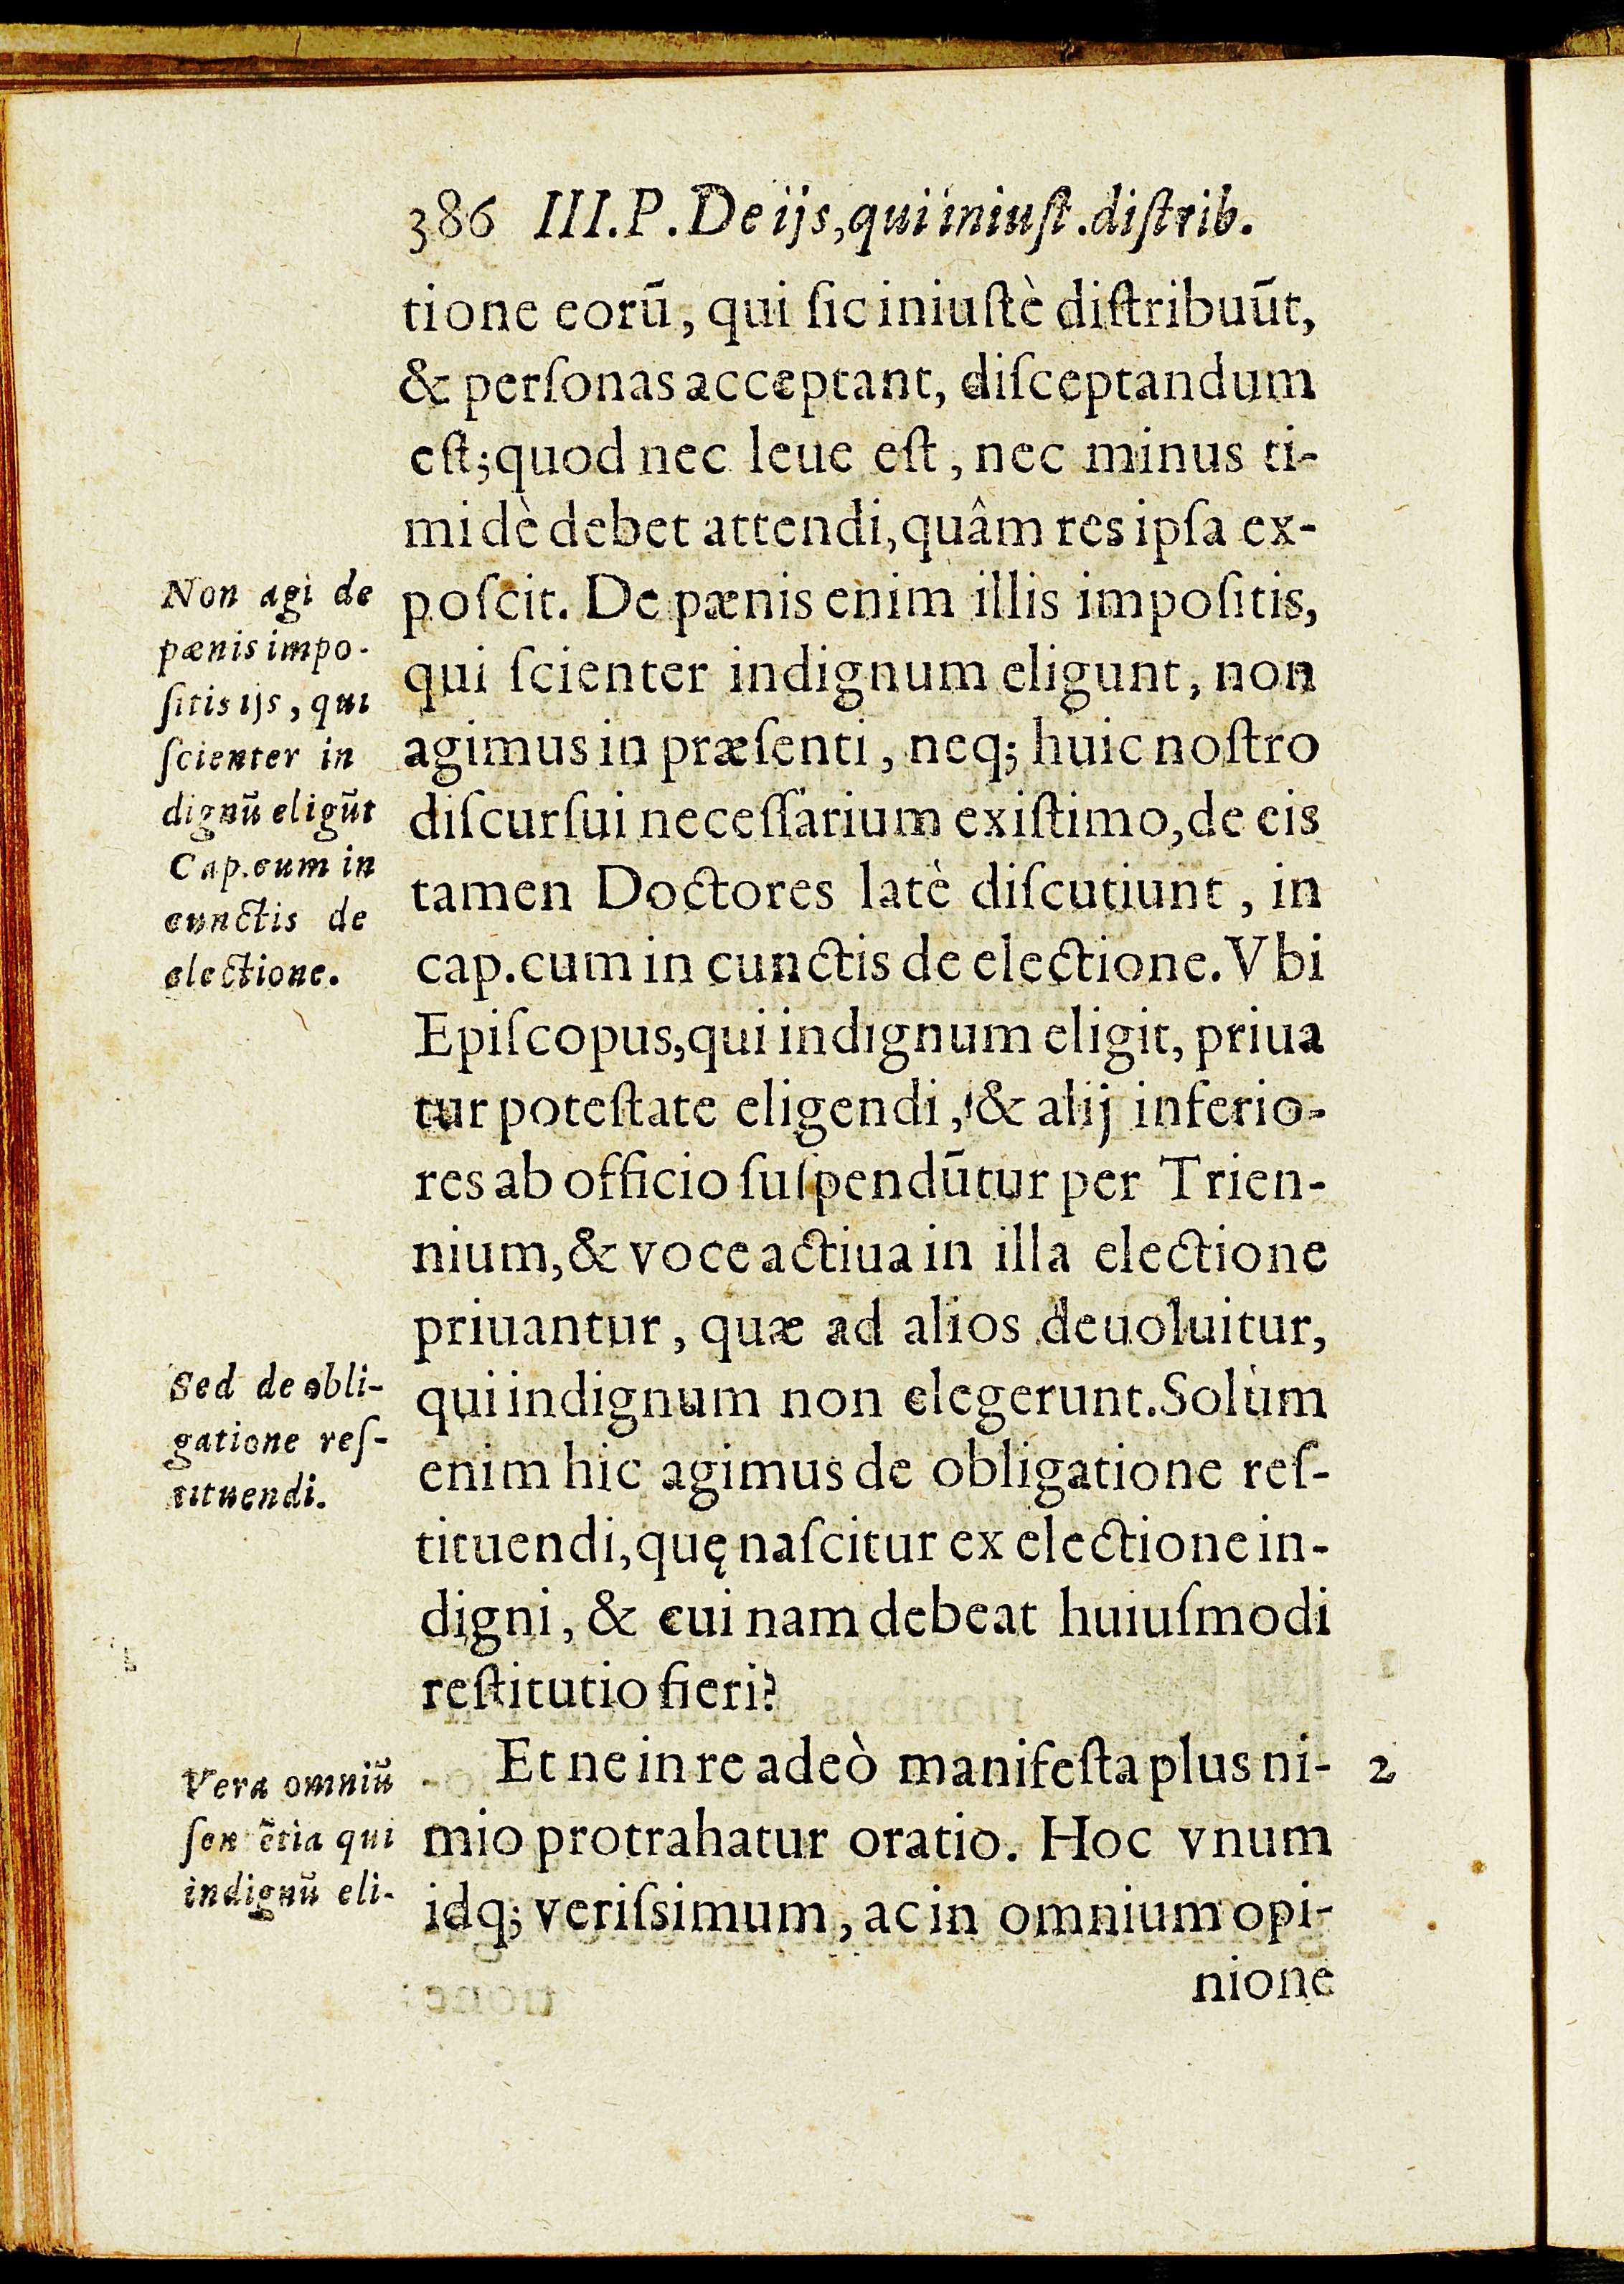 386 III.P. De ijs, qui iniuſt. diſtrib.
tione eorū, qui ſic iniuſtè diſtribuūt,
& perſonas acceptant, diſceptandum
eſt; quod nec leue eſt, nec minus ti-
midè debet attendi, quâm res ipſa ex-
poſcit. De pænis enim illis impoſitis,
qui ſcienter indignum eligunt, non
agimus in præſenti, neq; huic noſtro
diſcurſui neceſſarium exiſtimo, de eis
tamen Doctores latè diſcutiunt, in
cap. cum in cunctis de electione. Vbi
Epiſcopus, qui indignum eligit, priua
tur poteſtate eligendi, & alij inferio-
res ab officio ſuſpendūtur per Trien-
nium, & voce actiua in illa electione
priuantur, quæ ad alios deuoluitur,
qui indignum non elegerunt. Solùm
enim hic agimus de obligatione reſ-
tituendi, quę naſcitur ex electione in-
digni, & cui nam debeat huiuſmodi
reſtitutio fieri?
Et ne in re adeò manifeſta plus ni-
mio protrahatur oratio. Hoc vnum
idq; veriſsimum, ac in omnium opi-
nione
Non agi de
pænis impo-
ſitis ijs, qui
ſcienter in
dignū eligūt
Cap. cum in
cunctis de
electione.
Sed de obli-
gatione reſ-
tituendi.
Vera omniū
ſentētia qui
indignū eli-
2